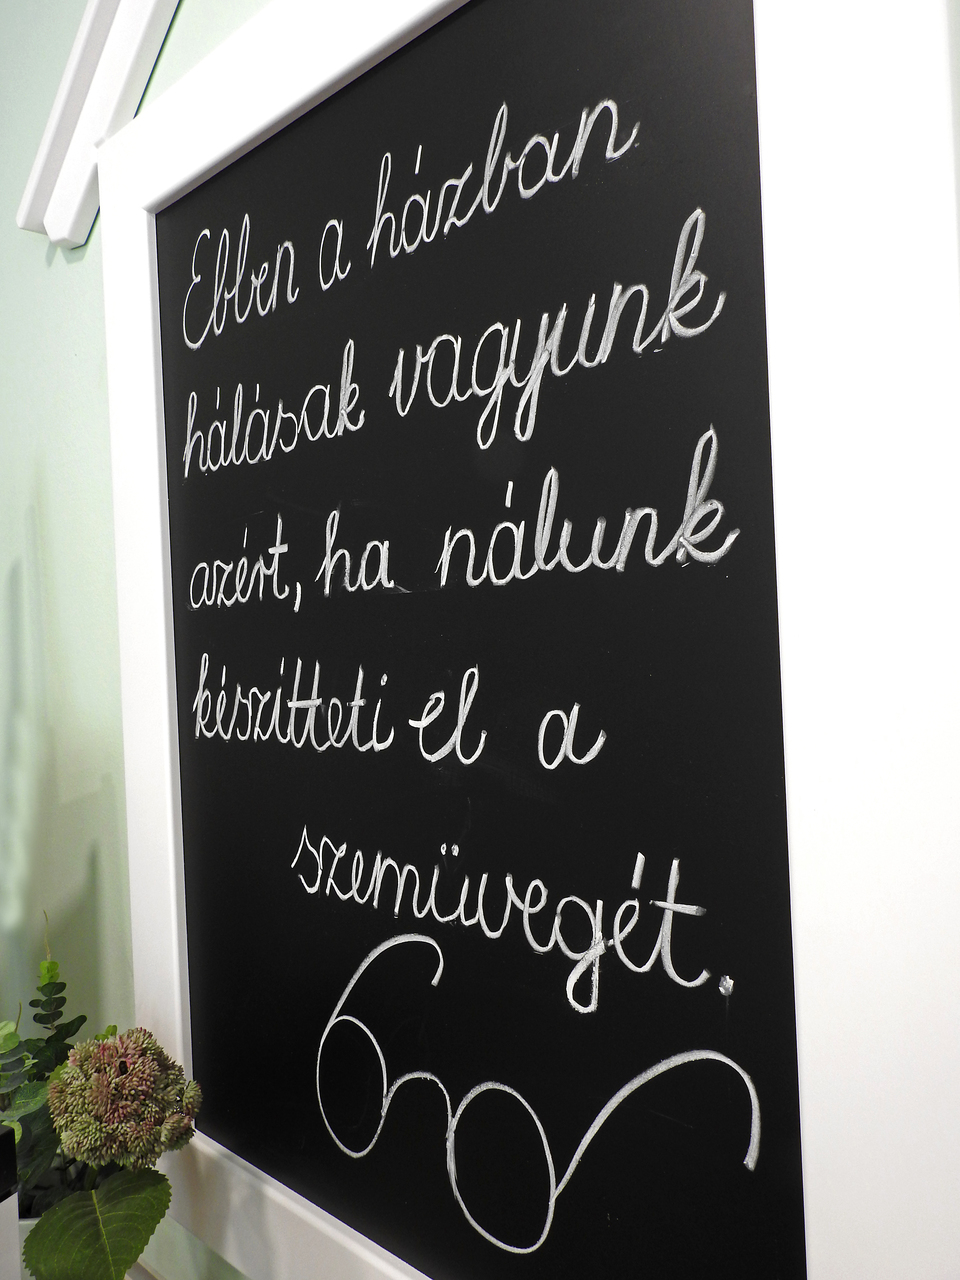 Ebben a házban
hálásak vagyunk
azért, ha nálunk
készítteti el a
szemüvegét.